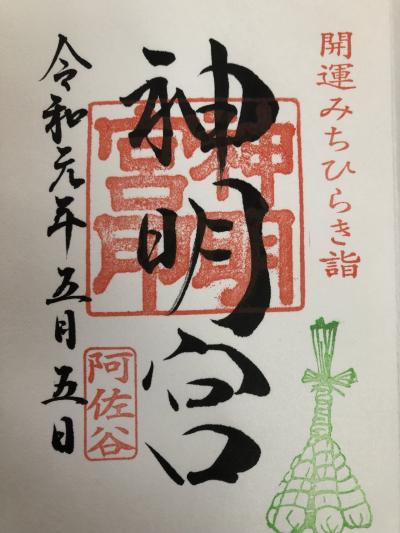 開運みちひらき詣
神明宮
神明宮印
阿佐谷
令和元年五月五日